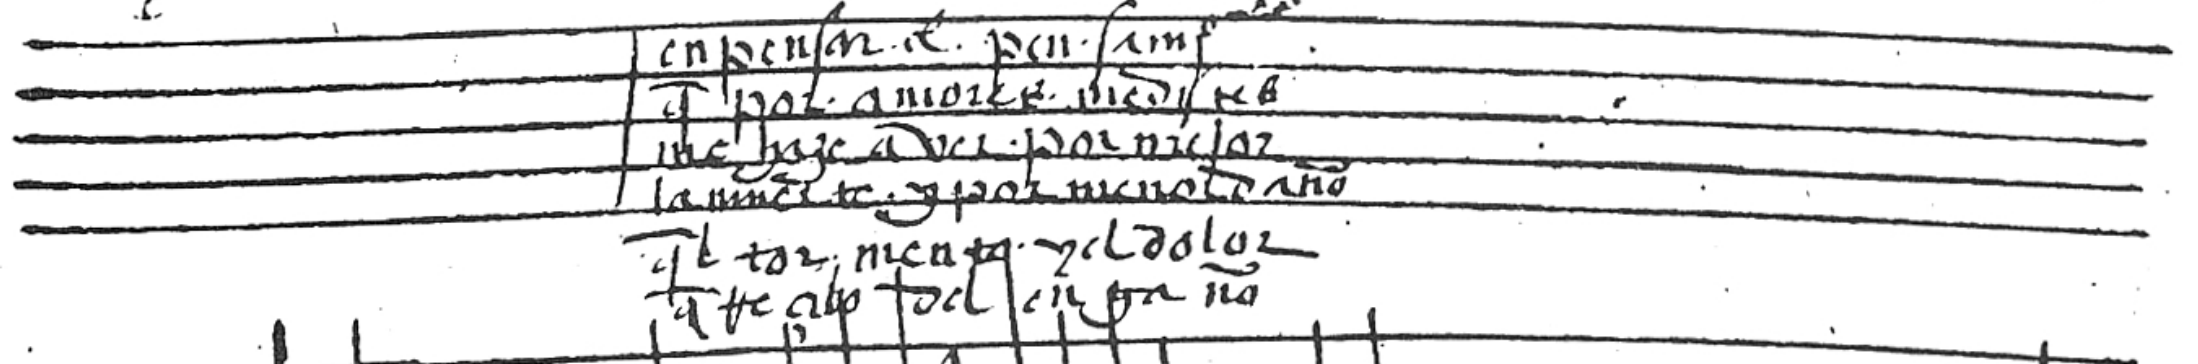 en pensar el pen sami
q̄ por amores
me haze aver por mejor
la muerte y por menor daño
q̄l tor mento y el dolor
q̄ del en ga ño